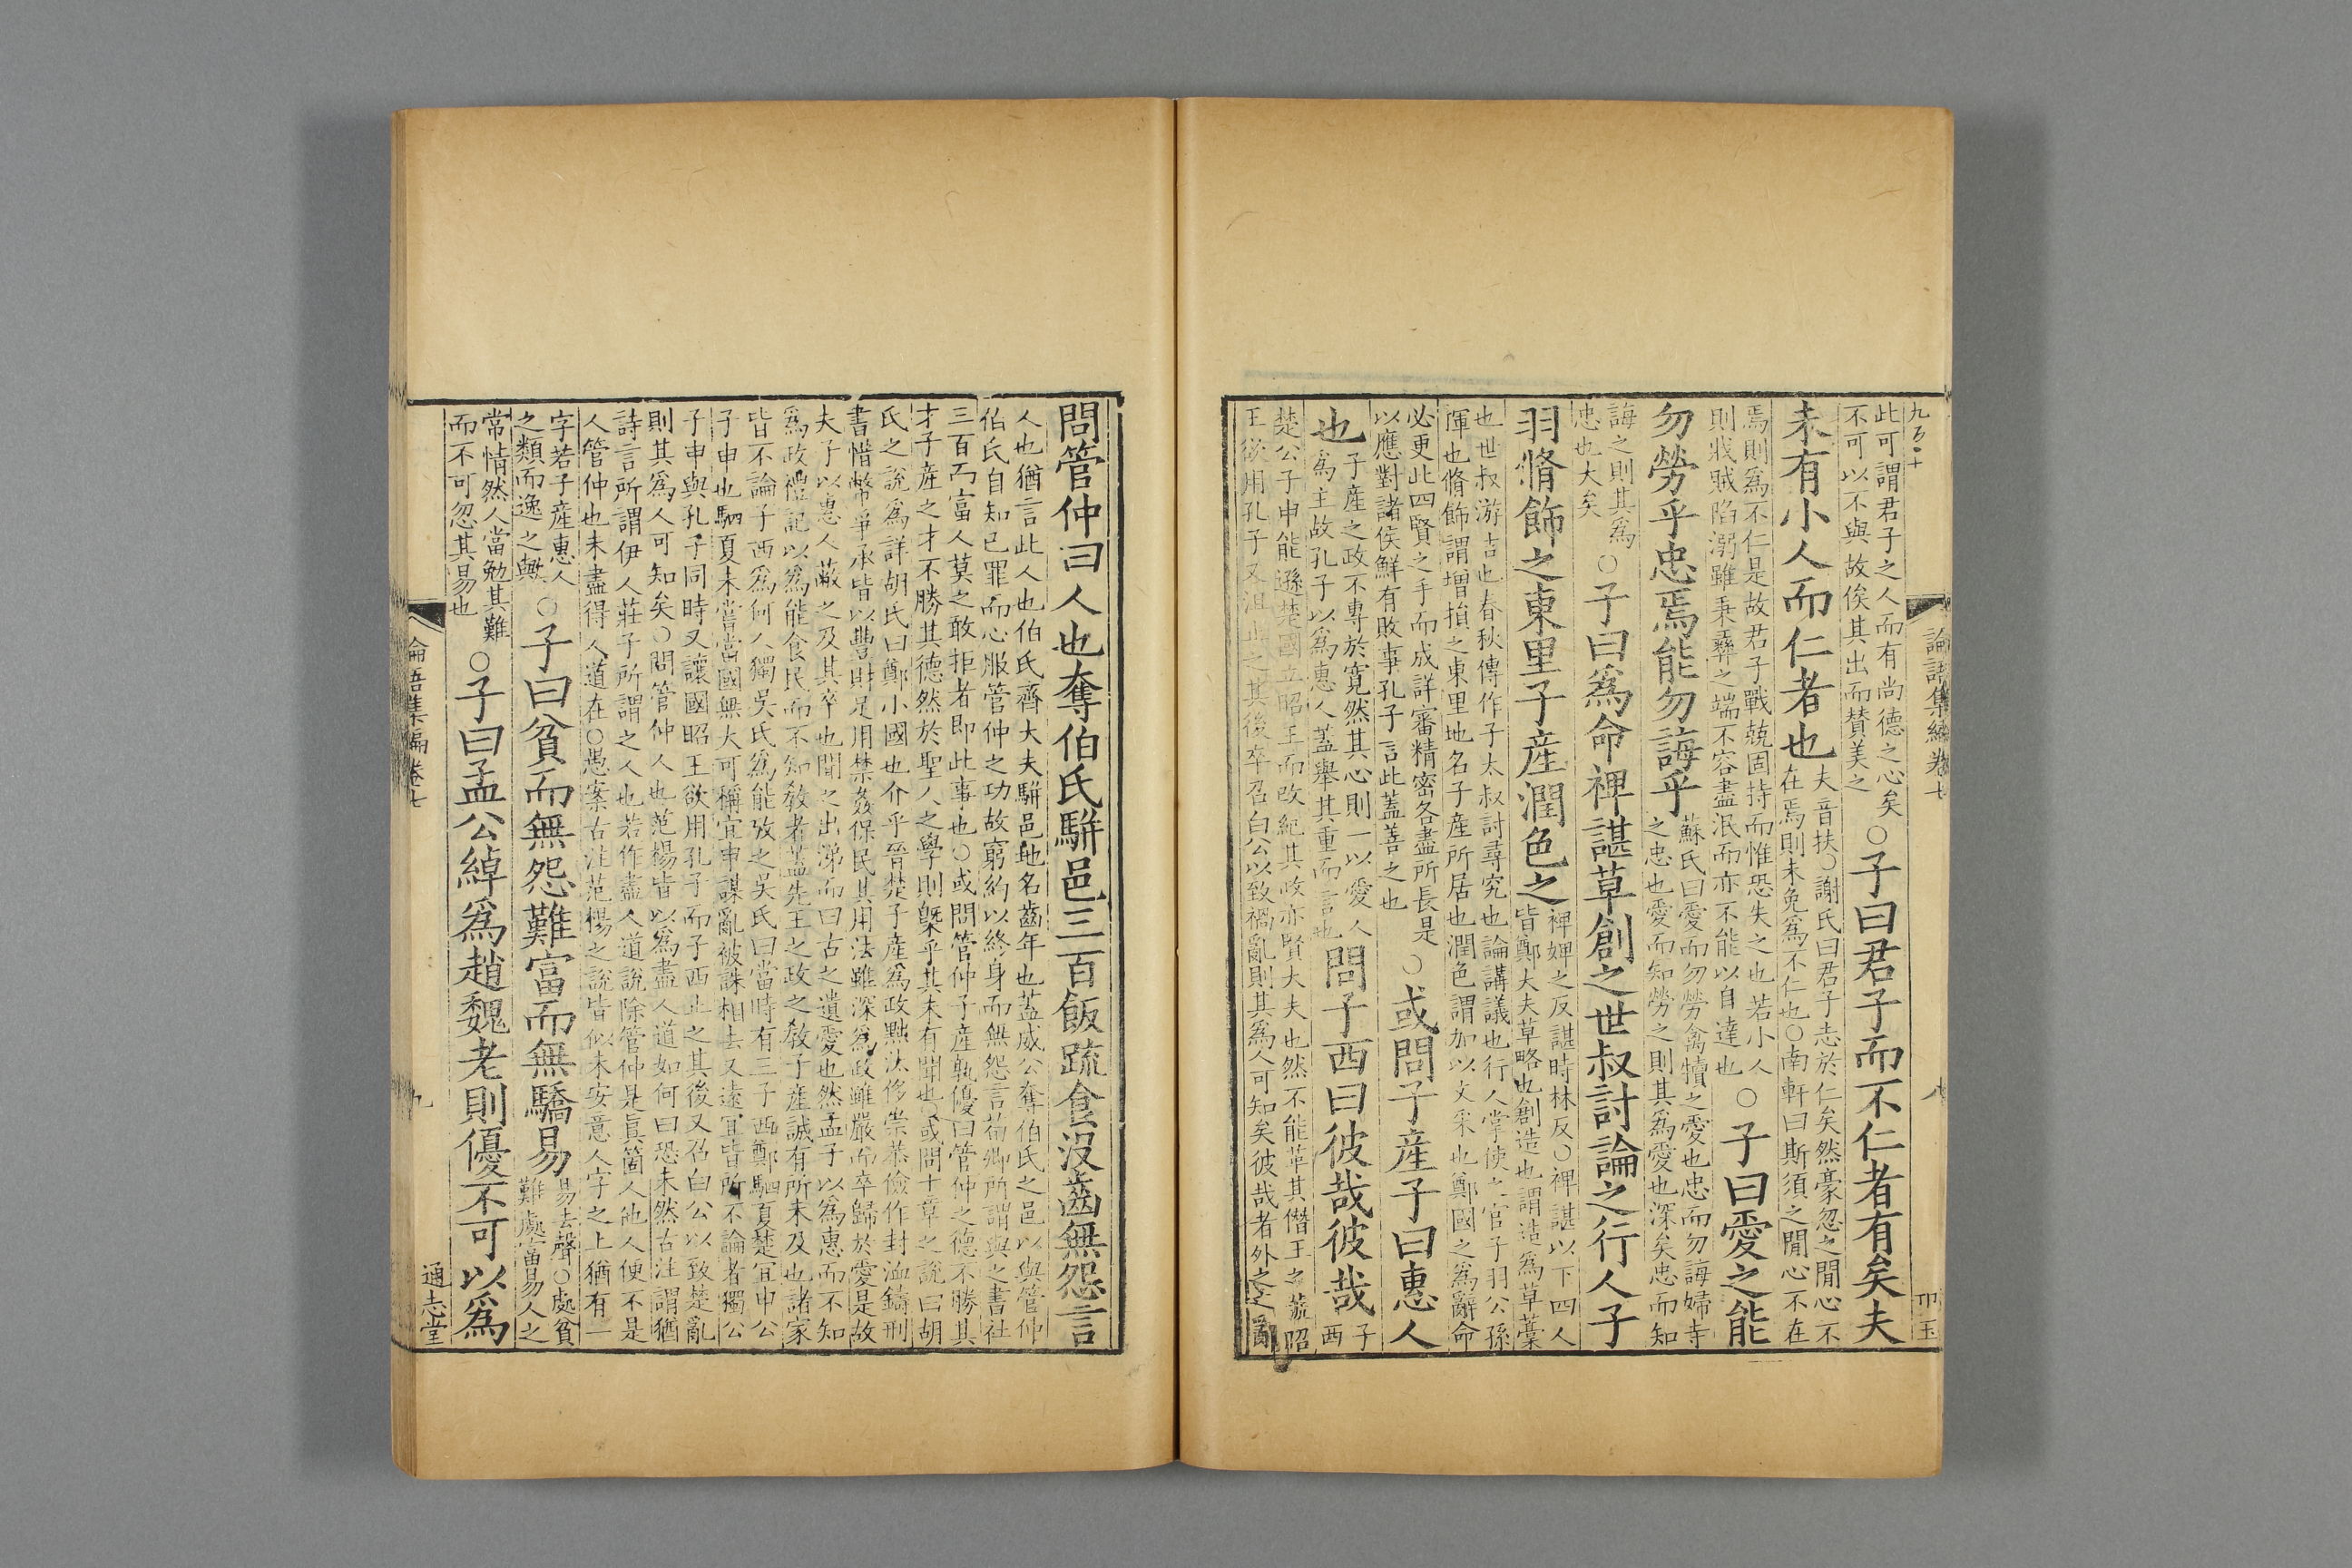 論語集編卷七
八
此可謂君子之人而有尚德之心矣
不可以不與故俟其出而賛美之
○子曰君子而不仁者有矣夫
未有小人而仁者也
夫音扶○謝氏曰君子志於仁矣然豪忽之閒心不
在焉則未免爲不仁也○南軒曰斯須之閒心不在
焉則爲不仁是故君子戰兢固持而惟恐失之也若小人
則戕賊陷溺雖秉彛之端不容盡泯而亦不能以自達也
○子曰愛之能
勿勞乎忠焉能勿誨乎
蘇氏曰愛而勿勞禽犢之愛也忠而勿誨婦寺
之忠也愛而知勞之則其爲愛也深矣忠而知
誨之則其爲
忠也大矣
○子曰爲命裨諶草創之世叔討論之行人子
羽脩飾之東里子産潤色之
裨婢之反諶時林反○裨諶以下四人
皆鄭大夫草略也創造也謂造爲草藁
也世叔游吉也春秋傳作子太叔討尋究也論講議也行人掌使之官子羽公孫
揮也脩飾謂增損之東里地名子産所居也潤色謂加以文采也鄭國之爲辭命
必更此四賢之手而成詳審精密各盡所長是
以應對諸侯鮮有敗事孔子言此蓋善之也
○或問子産子曰惠人
也
子産之政不專於寛然其心則一以愛人
爲主故孔子以爲惠人蓋舉其重而言也
問子西曰彼哉彼哉
子
西
楚公子申能遜楚國立昭王而改紀其政亦賢大夫也然不能革其僭王之
昭
王欲用孔子又沮止之其後卒召白公以致禍亂則其爲人可知矣彼哉者外之之
問管仲曰人也奪伯氏駢邑三百飯疏食沒齒無怨言
人也猶言此人也伯氏齊大夫駢邑地名齒年也蓋威公奪伯氏之邑以與管仲
伯氏自知己罪而心服管仲之功故窮約以終身而無怨言荀卿所謂與之書社
三百而富人莫之敢拒者即此事也○或問管仲子産孰優曰管仲之德不勝其
才子産之才不勝其德然於聖人之學則槩乎其未有聞也○或問十章之說曰胡
氏之說爲詳胡氏曰鄭小國也介乎晉楚子産爲政黜汰侈崇恭儉作封洫鑄刑
書惜幣爭承皆以豐財足用禁姦保民其用法雖深爲政雖嚴而卒歸於愛是故
夫子以惠人蔽之及其卒也聞之出涕而曰古之遺愛也然孟子以爲惠而不知
爲政禮記以爲能食民而不知敎者蓋先王之政之敎子産誠有所未及也諸家
皆不論子西爲何人獨吳氏爲能攷之吳氏曰當時有三子西鄭駟夏楚宜申公
子申也駟夏未嘗當國無大可稱宜申謀亂被誅相去又遠宜皆所不論者獨公
子申與孔子同時又讓國昭王欲用孔子而子西止之其後又召白公以致楚亂
則其爲人可知矣○問管仲人也范楊皆以爲盡人道如何曰恐未然古注謂猶
詩言所謂伊人莊子所謂之人也若作盡人道說除管仲是眞箇人他人便不是
人管仲也未盡得人道在○愚案古注范楊之說皆似未安意人字之上猶有一
字若子産惠人
之類而逸之與
○子曰貧而無怨難富而無驕易
易去聲○處貧
難處富易人之
常情然人當勉其難
而不可忽其易也
○子曰孟公綽爲趙魏老則優不可以爲
論語集編卷七
九
通志堂